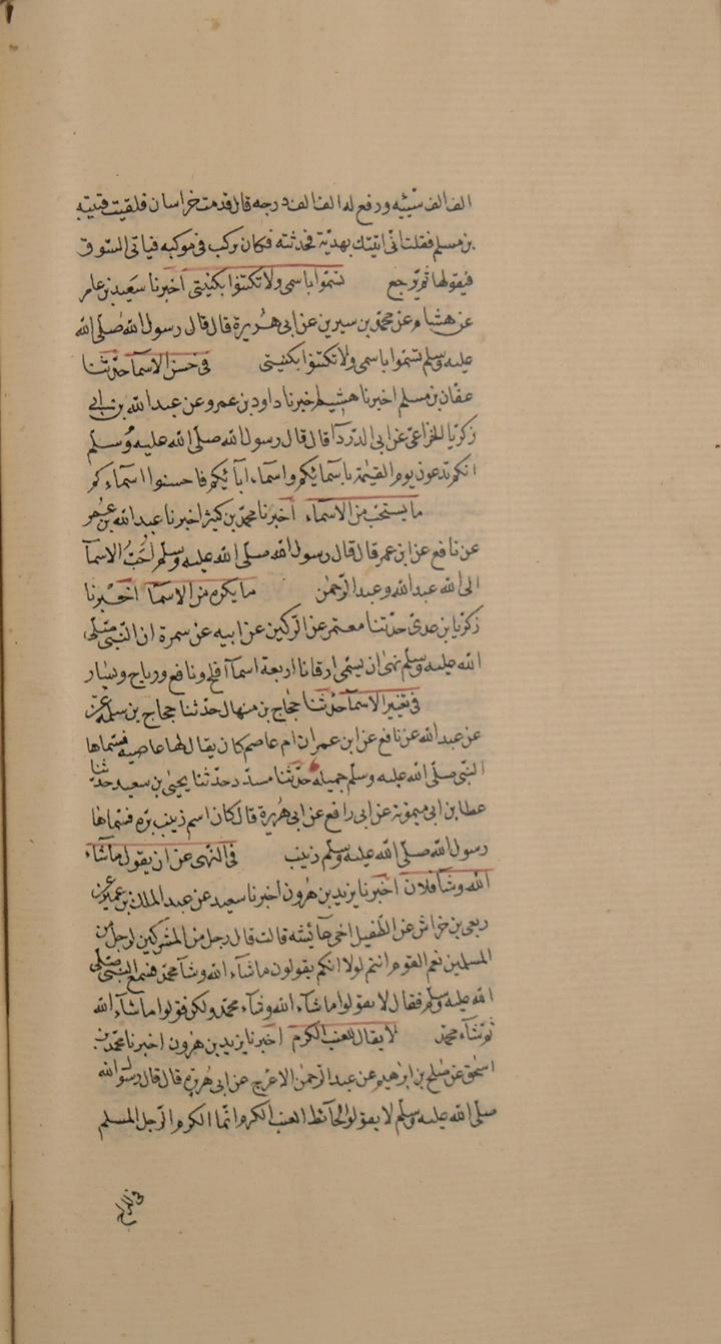 الف الف سيئه ورفع له الف الف درجه قال قدمت خراسان فلقيت قتيبه
بن مسلم فقلت اني اتيتك بهديّة فحدثته فكان يركب في موكبه فياتي السّوق
فيقولها ثم يرجع تسمّوا باسمي ولا تكنّوا بكنيتي اخبرنا سعيد بن عامر
عن هشام عن محمّد بن سيرين عن ابي هريرة قال قال رسول الله صلّى الله
عليه وسلم تسمّوا باسمي ولا تكنّوا بكنيتي في حسن الاسمآ حدّثنا
عفّان بن مسلم اخبرنا هشيم اخبرنا داود بن عمرو عن عبد الله بن ابي
زكريّا الخزاعيّ عن ابي الدّردآ قال قال رسول الله صلّى الله عليه وسلم
انكم تدعون يوم القيٰمة باسمائكم واسماء ابآئكم فاحسنوا اسماءكم
ما يستحبّ من الاسماء اخبرنا محمّد بن كثير اخبرنا عبد الله بن عمر
عن نافع عن ابن عمر قال قال رسول الله صلّى الله عليه وسلم احبّ الاسمآ
الى الله عبد الله وعبد الرّحمٰن ما يكره من الاسمآ اخبرنا
زكريّا بن عدي حدّثنا معتمر عن الرّكين عن ابيه عن سمرة ان النّبي صلّى
الله عليه وسلم نهى ان يسمّى ارقانا اربعة اسمآ افلح ونافع ورباح ويسار
في تغيير الاسمآ حدّثنا حجّاج بن منهال حدّثنا حجاج بن سلمة عن
عن عبد الله عن نافع عن ابن عمر ان ام عاصم كان يقال لها عاصيه فسمّاها
النبي صلّى الله عليه وسلم جميلة حدّثنا مسدّد حدّثنا يحيٰى بن سعيد حدّثنا
عطا بن ابي ميمونة عن ابي رافع عن ابي هريرة قال كان اسم زينب برّه فسمّاها
رسول الله صلّى الله عليه وسلم زينب في النّهي عن ان يقول ما شآء
الله وشآ فلان اخبرنا يزيد بن هٰرون اخبرنا سعيد عن عبد الملك بن عمير عن
ربعي بن خراش عن الطّفيل اخي عآئشه قالت قال رجل من المشركين لرجل من
المسلمين نعم القوم انتم لولا انكم يقولون ما شآء الله وشآ محمّد فسمع النبي صلّى
الله عليه وسلم فقال لا يقولوا ما شآء الله وشآء محمّد ولكن قولوا ما شآء الله
ثم شآء محمّد لا يقال للعنب الكرم اخبرنا يزيد بن هٰرون اخبرنا محمّد بن
اسحٰق عن صٰلح بن ابرٰهيم عن عبد الرّحمٰن الاعرج عن ابي هريرة قال قال رسول الله
صلّى الله عليه وسلم لا يقولوا لحآئط العنب الكرم وانّما الكرم الرّجل المسلم